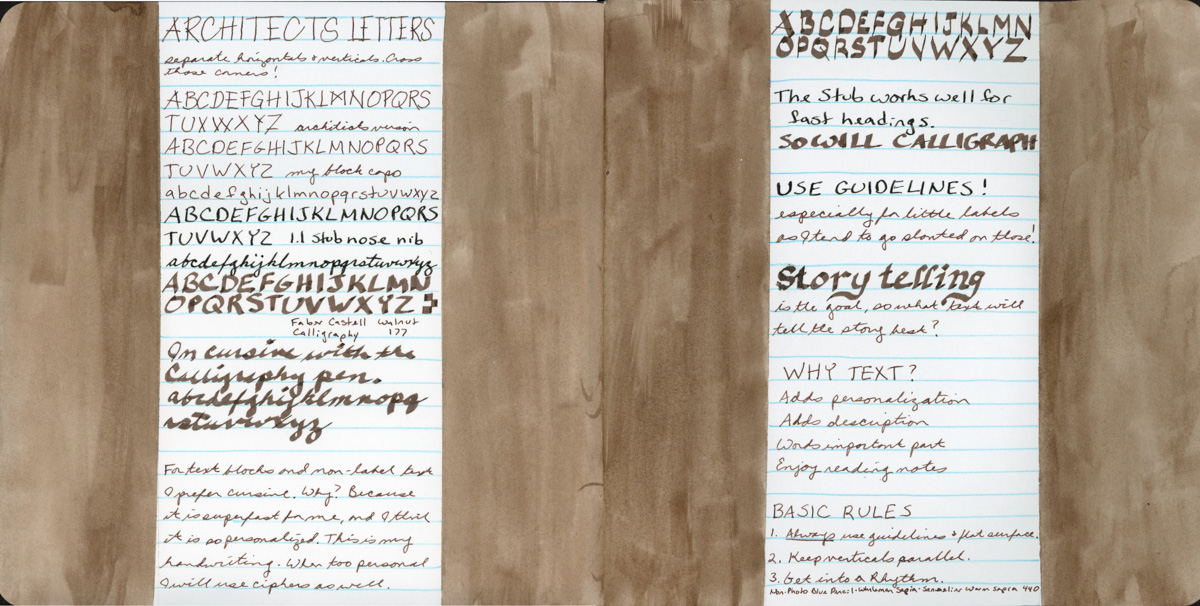 ARCHITECTS LETTERS
separate horizontals & verticals. Cross
those corners!
ABCDEFGHIJKLMNOPQRS
TUXWXYZ architects version
ABCDEFGHIJKLMNOPQRS
TUVWXYZ my block caps
abcdefghijklmnopqrstuvwxyz
ABCDEFGHIJKLMNOPQRS
TUVWXYZ 1.1 Stub nose nib
abcdefghijklmnopqrstuvwxyz
ABCDEFGHIJKLMN
OPQRSTUVWXYZ
Faber Castell Walnut
Calligraphy 177
In cursive with the
Calligraphy pen.
abcdefghijklmnopq
rstuvwxyz
For text blocks and non-label text
I prefer cursive. Why? Because
it is superfast for me, and I think
it is so personalized. This is my
handwriting. When too personal
I will use ciphers as well.
ABCDEFGHIJKLMN
OPQRSTUVWXYZ
The Stub works well for
fast headings.
SO WILL CALLIGRAPH
USE GUIDELINES!
especially for little labels
as I tend to go slanted on those!
Story telling
is the goal, so what text will
tell the story best?
WHY TEXT?
Adds personalization
Adds description
Words important part
Enjoy reading notes
BASIC RULES
1. Always use guidelines & flat surface.
2. Keep verticals parallel.
3. Get into a Rhythm.
Non-Photo Blue Pencil - Sepia - Warm Sepia 440